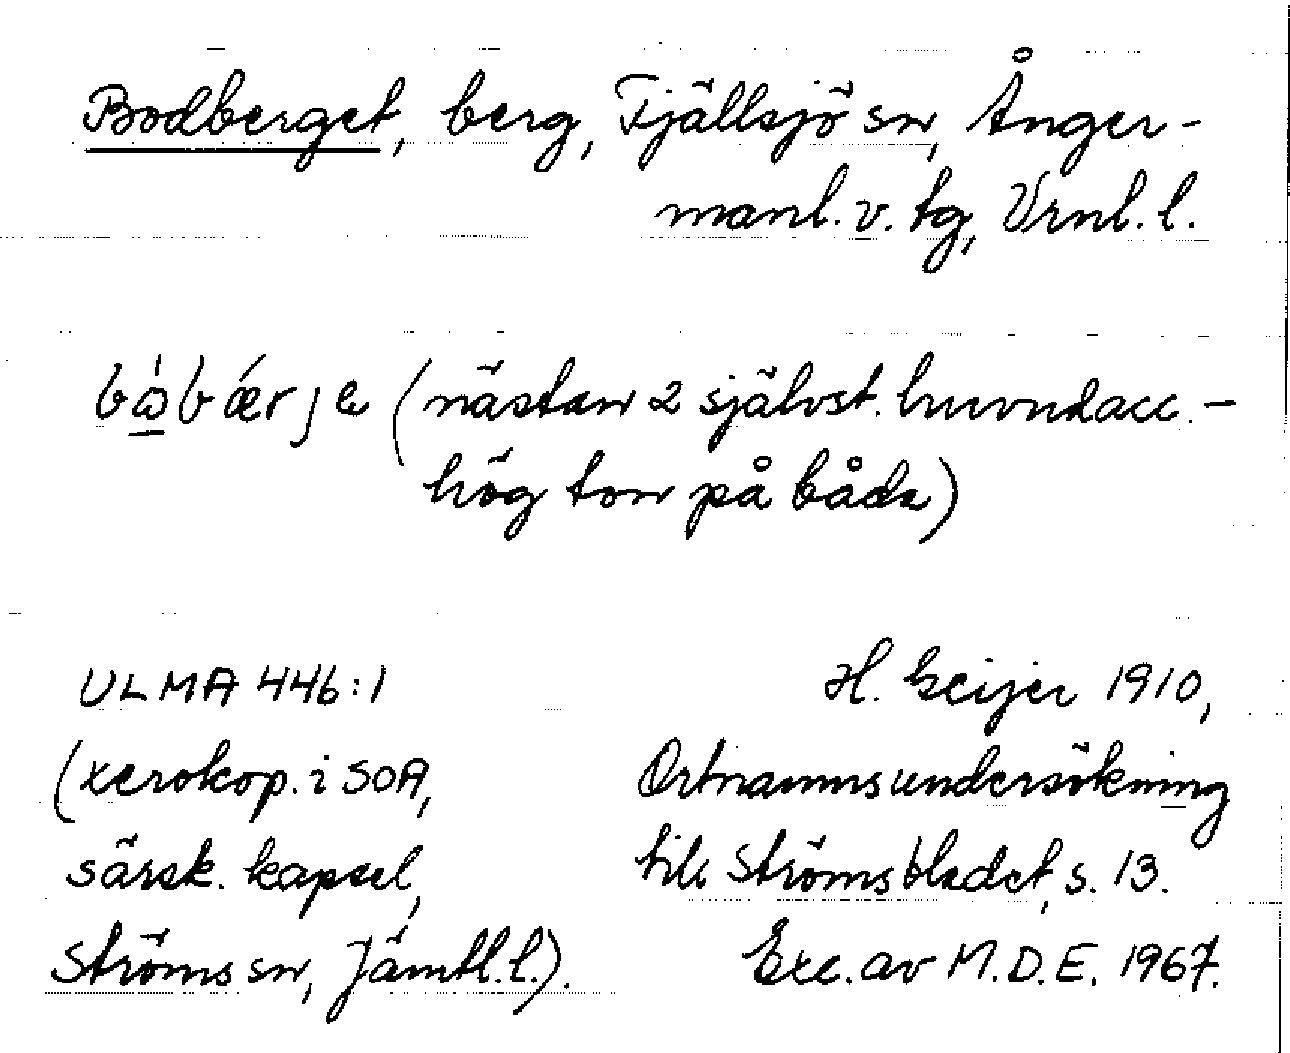 Bodberget, berg, Fjällsjö sn, Ånger-
manl. v. tg, Vrnl. l.
(nästan 2 självst. huvudacc. -
hög ton på båda)
ULMA 446:1
(xerokop. i SOA,
särsk. kapsel,
Ströms sn, Jämtl. l.).
H. Geijer 1910,
Ortnamnsundersökning
till Strömsbladet, s. 13.
Exc. av M.D.E. 1967.